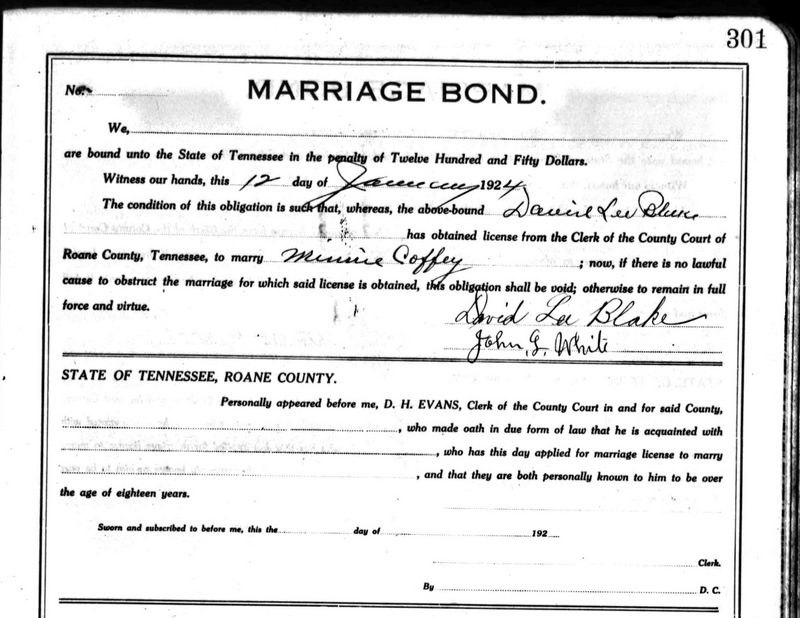 301
No.
MARRIAGE BOND.
We,
are bound unto the State of Tennessee in the penalty of Twelve Hundred and Fifty Dollars.
Witness our hands, this 12 day of January 1924
The condition of this obligation is such that, whereas, the above-bound David Lee Blake
has obtained license from the Clerk of the County Court of
Roane County, Tennessee, to marry Minnie Coffey ; now, if there is no lawful
cause to obstruct the marriage for which said license is obtained, this obligation shall be void; otherwise to remain in full
force and virtue.
David Lee Blake
John G. White
STATE OF TENNESSEE, ROANE COUNTY.
Personally appeared before me, D. H. EVANS, Clerk of the County Court in and for said County,
, who made oath in due form of law that he is acquainted with
, who has this day applied for marriage license to marry
, and that they are both personally known to him to be over
the age of eighteen years.
Sworn and subscribed to before me, this the day of 192
Clerk.
By D. C.